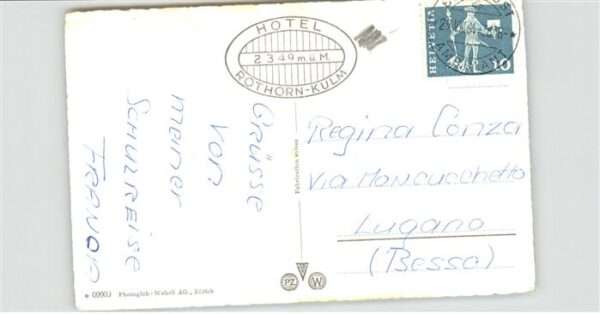 HOTEL
2349 m ü M.
ROTHORN-KULM
HELVETIA
10
GRÜSSE
VON
MEINER
SCHULREISE
Regina Conza
Via Moncucchetto
Lugano
(Besso)
Fabrication suisse
Photoglob-Wehrli AG., Zürich
PZ
W